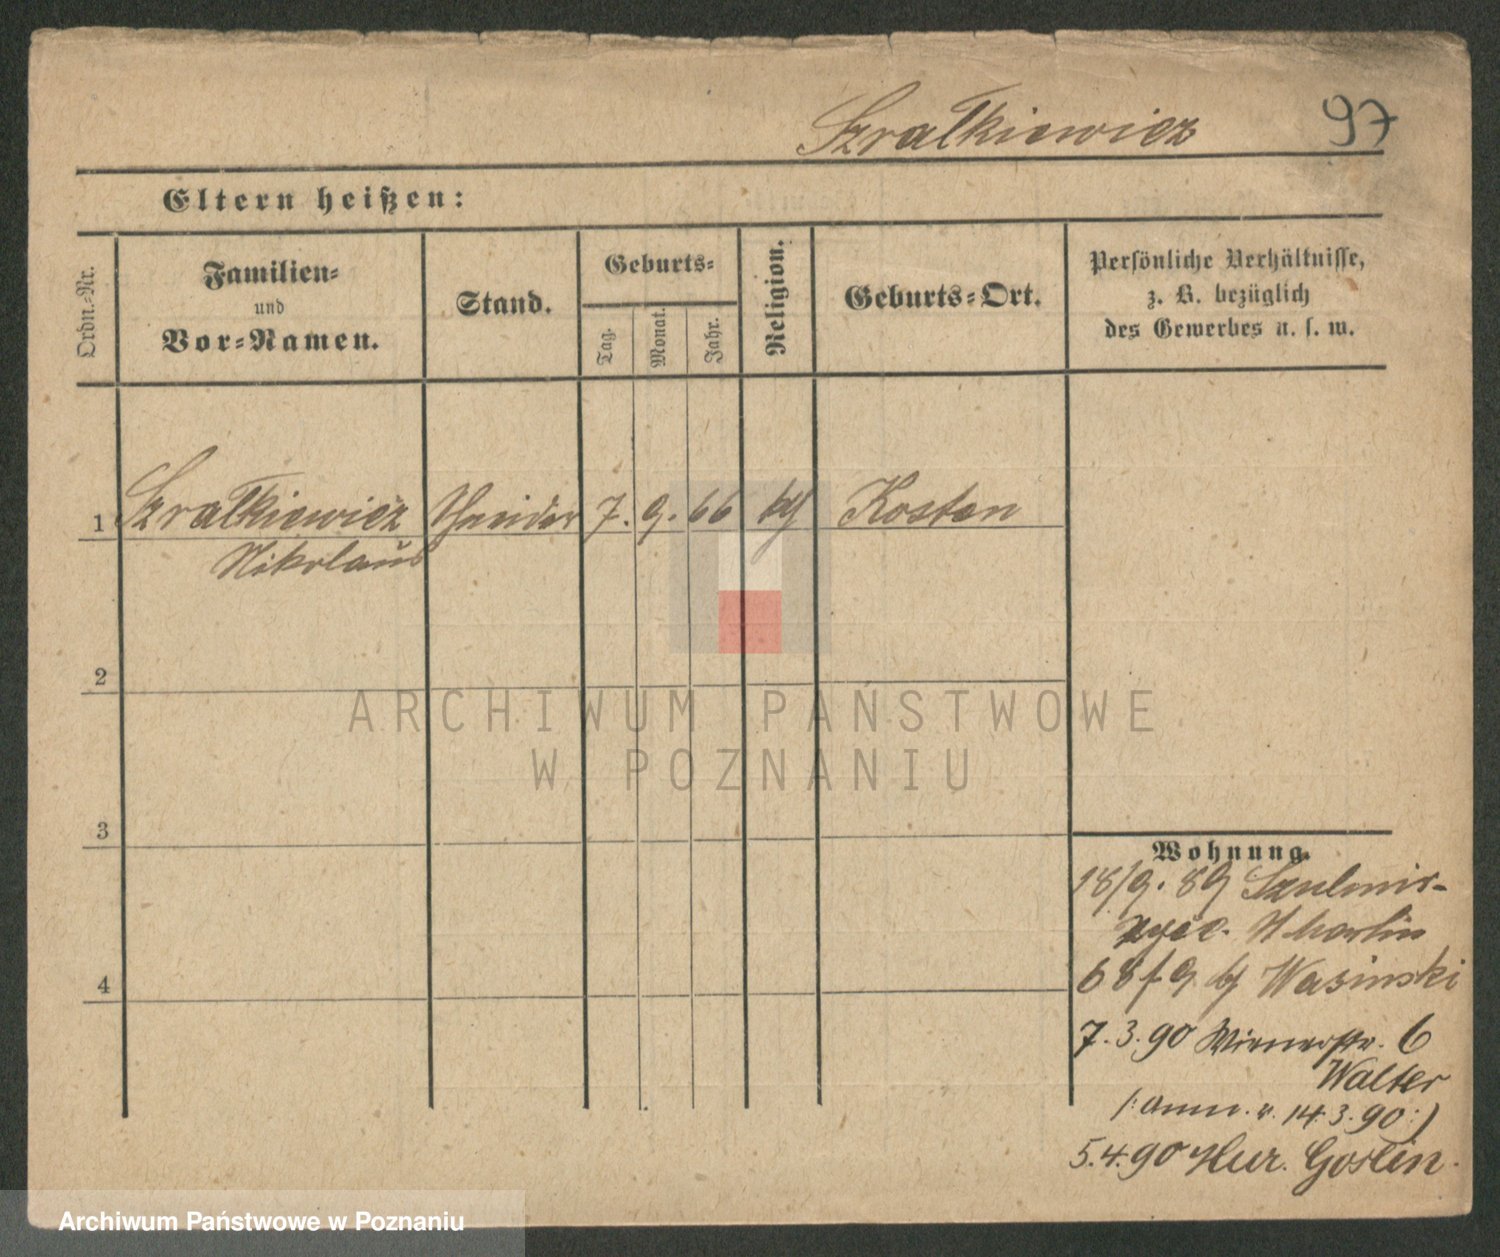 Szrałkiewicz 97
Eltern heißen:
Ordn.-Nr.
Familien-
und
Vor-Namen.
Stand.
Geburts-
Tag.
Monat.
Jahr.
Religion.
Geburts-Ort.
Persönliche Verhältnisse,
z. B. bezüglich
des Gewerbes u. s. w.
1 Szrałkiewicz 7. 9. 66 kth Kosten
Nikolaus
2
ARCHIWUM PAŃSTWOWE
W POZNANIU
3
4
Wohnung.
18/9. 89
St Martin
68 Wasinski
7.3.90 Wienerstr. 6
Walter
(: anm. v. 14.3.90 :)
5.4.90 Mur. Goslin.
Archiwum Państwowe w Poznaniu